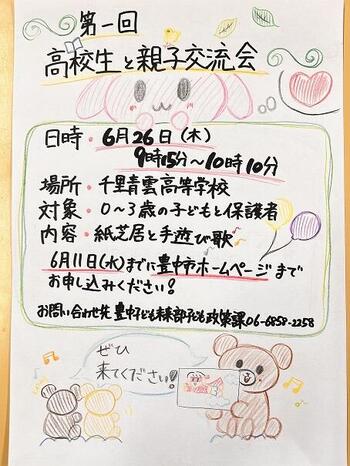 第一回
高校生と親子交流会
日時・6月26日(木)
9時15分〜10時10分
場所・千里青雲高等学校
対象・0〜3歳の子どもと保護者
内容・紙芝居と手遊び歌
6月11日(水)までに豊中市ホームページまで
お申し込みください!
お問い合わせ先 豊中子ども未来部子ども政策課06-6858-2258
ぜひ
来てください!